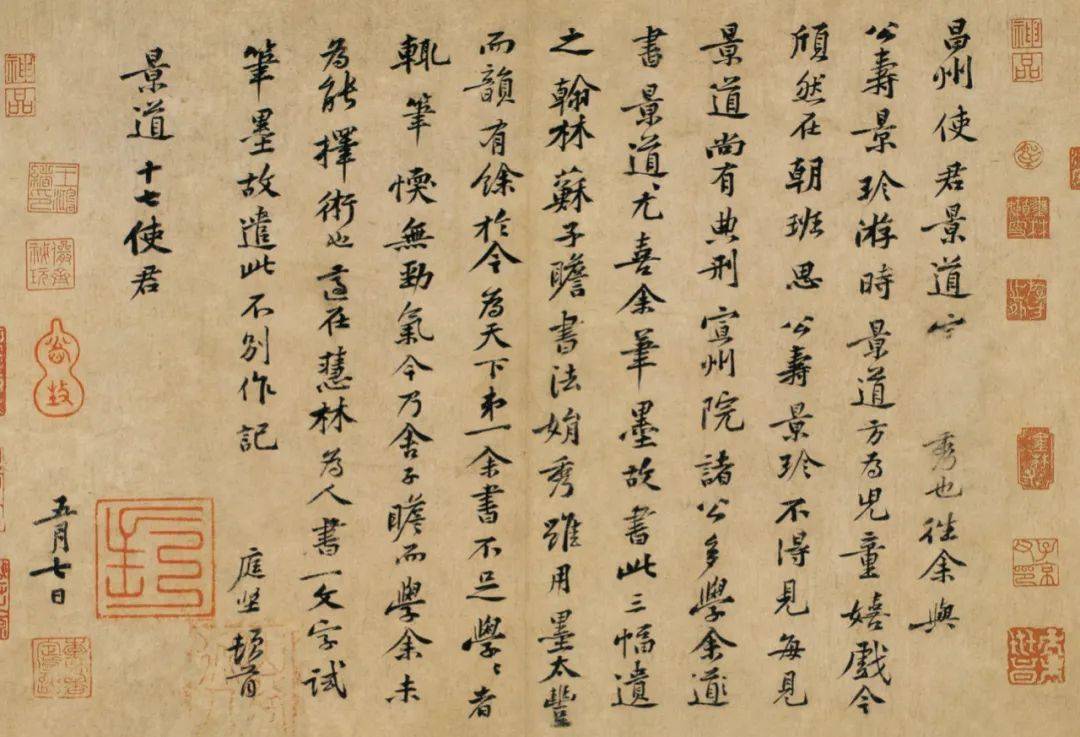 神品
昌州使君景道宗秀也往余與
公壽景珍游時景道方為兒童嬉戲今
頎然在朝班思公壽景珍不得見每見
景道尚有典刑宣州院諸公多學余道
書景道〻尤喜余筆墨故書此三幅遺
之翰林蘇子瞻書法娟秀雖用墨太豐
而韻有餘於今為天下第一余書不足學〻者
輒筆愞無勁氣今乃舍子瞻而學余未
為能擇術也適在慧林為人書一文字試
筆墨故遣此不別作記
庭堅頓首
景道十七使君
五月七日
神品